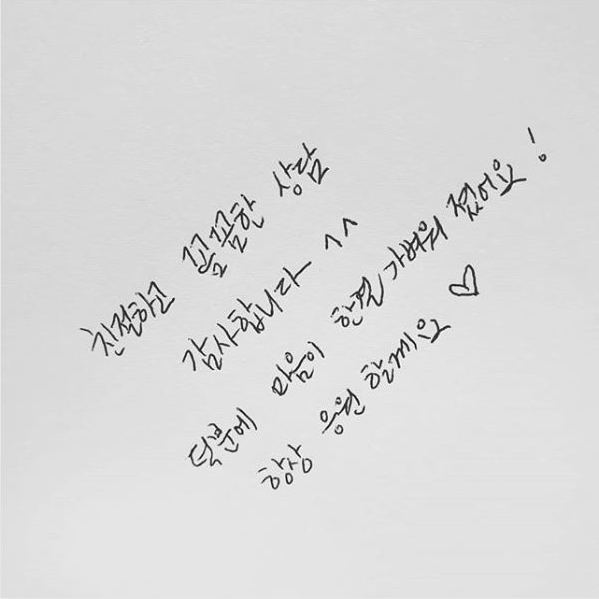 친절하고 꼼꼼한 상담
감사합니다 ^^
덕분에 마음이 한결 가벼워 졌어요!
항상 응원 할께요 ♡